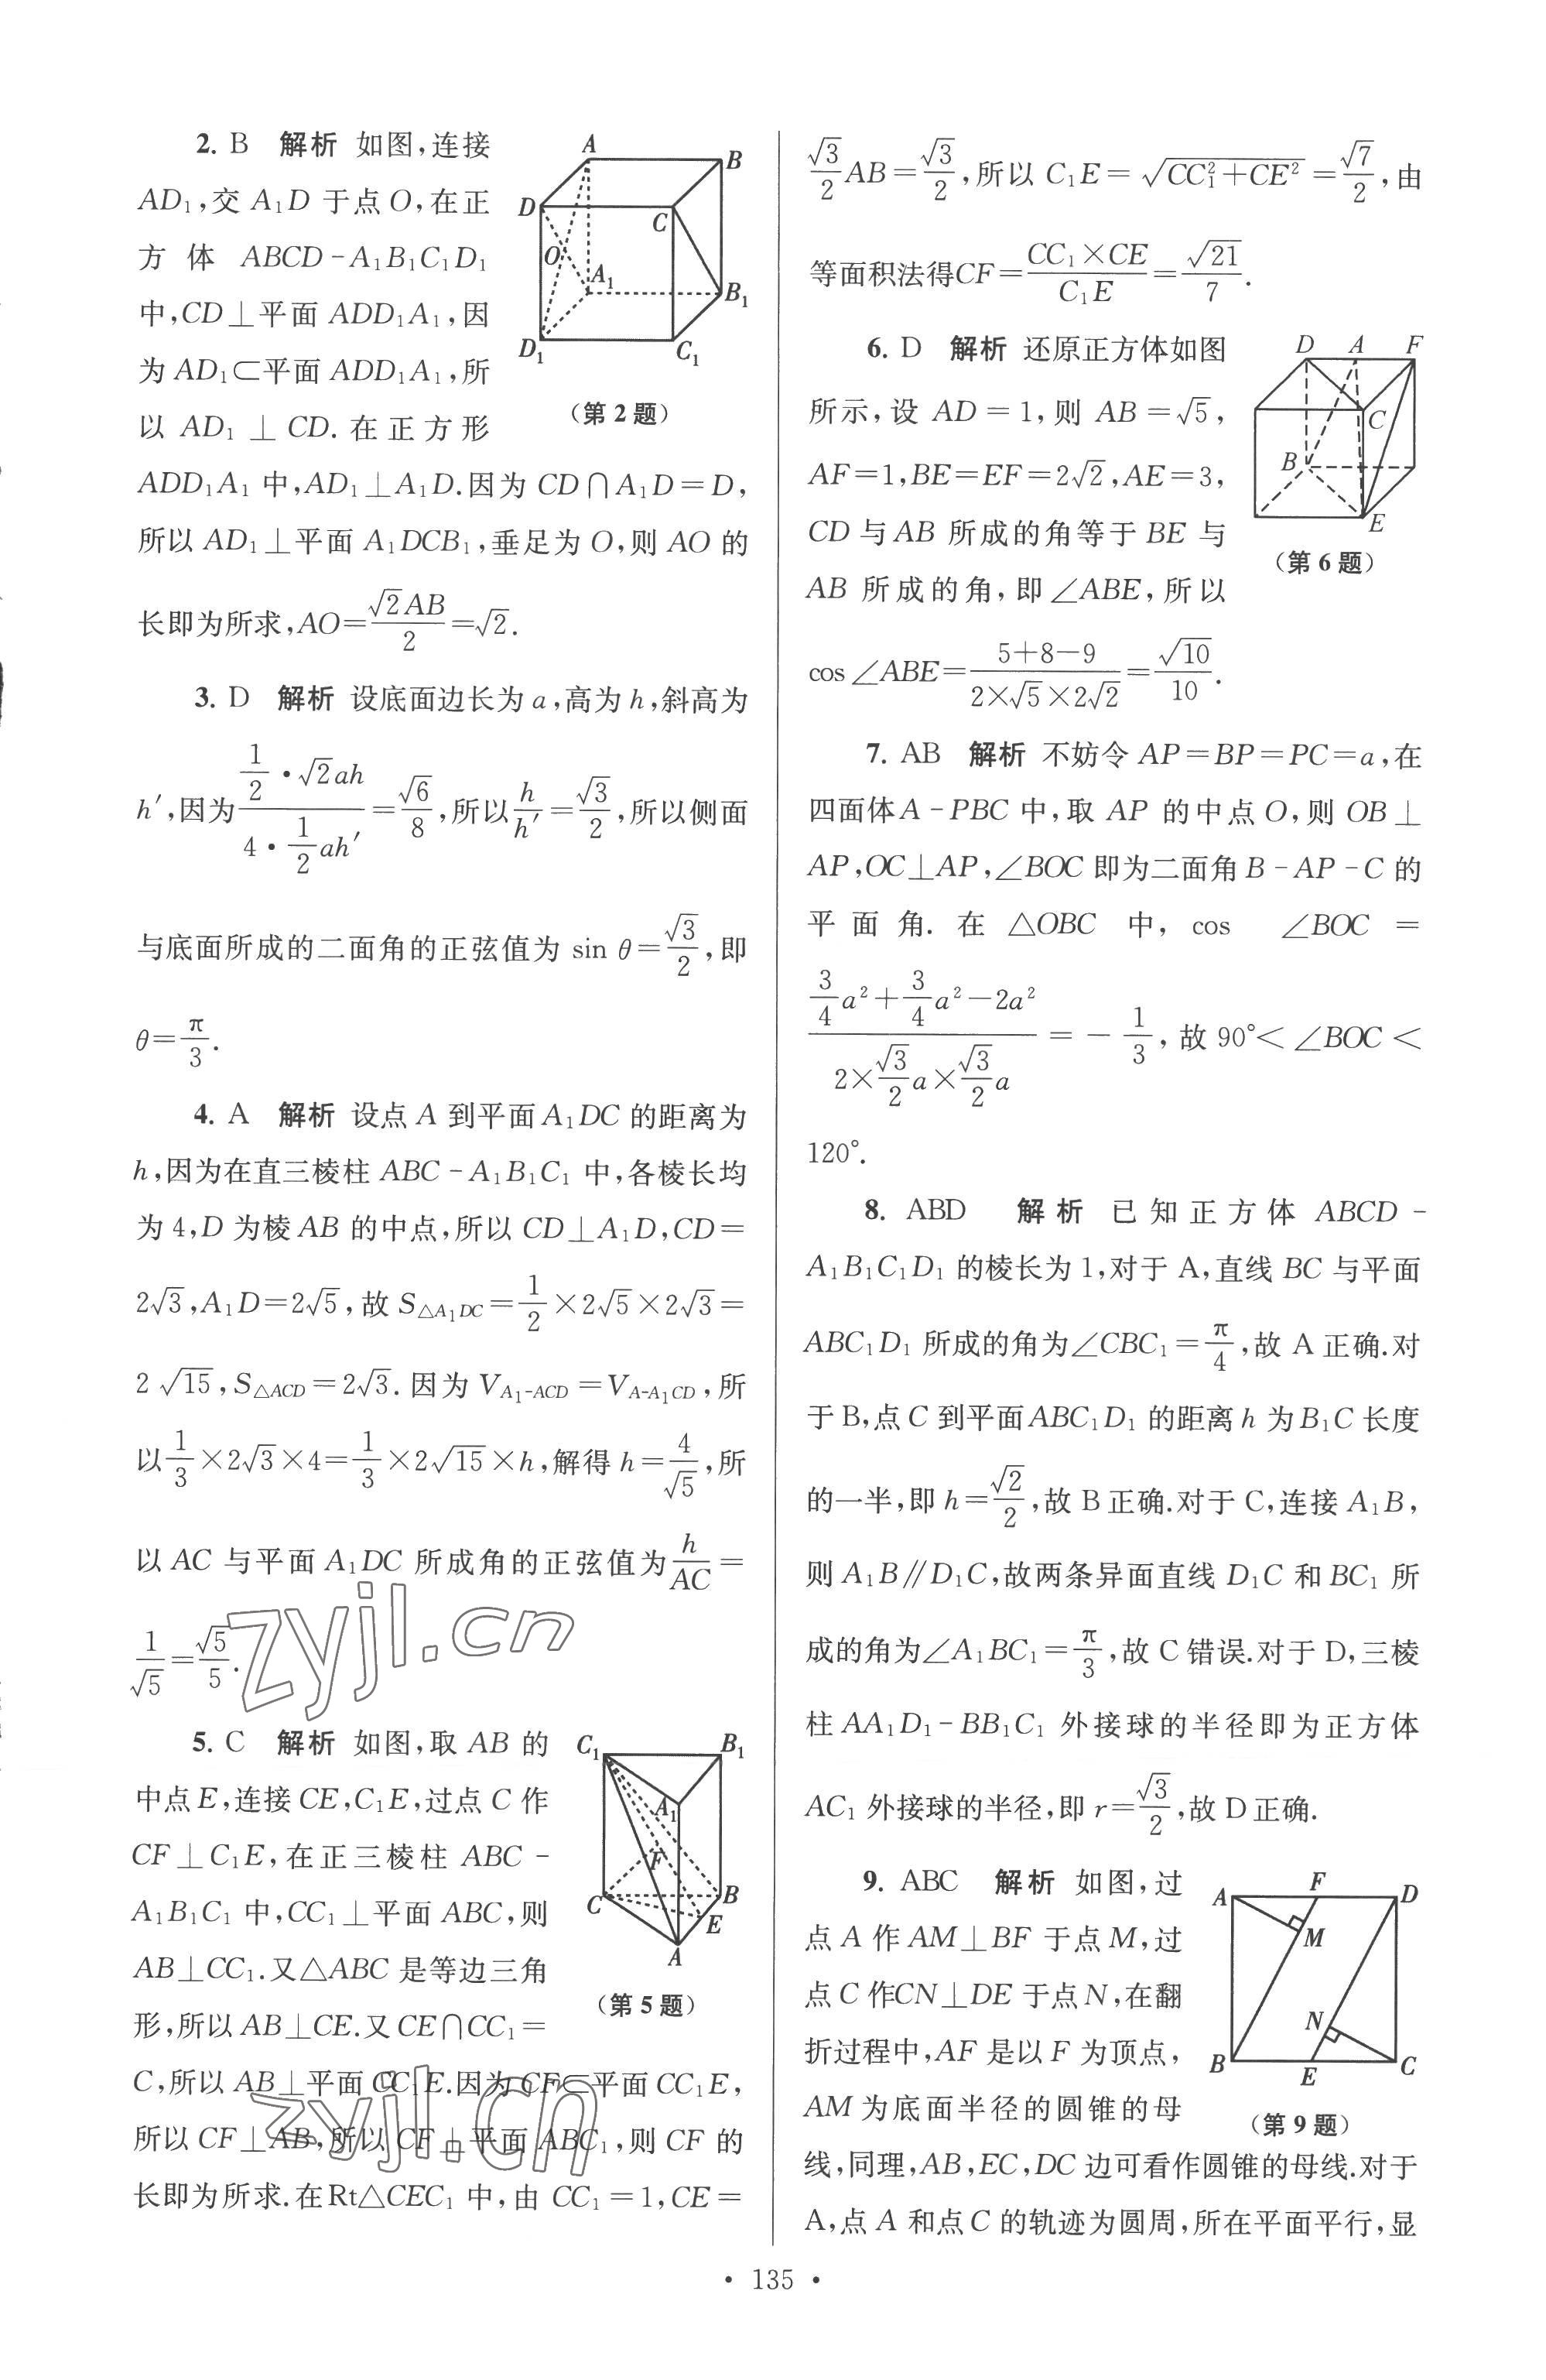 2. B 解析 如图,连接
AD₁,交 A₁D 于点 O,在正
方体 ABCD-A₁B₁C₁D₁
中,CD⊥平面 ADD₁A₁,因
为 AD₁⊂平面 ADD₁A₁,所
以 AD₁⊥CD. 在正方形
ADD₁A₁ 中,AD₁⊥A₁D.因为 CD∩A₁D=D,
所以 AD₁⊥平面 A₁DCB₁,垂足为 O,则 AO 的
长即为所求,AO=√2AB/2=√2.
A B D C O A₁ B₁ D₁ C₁
(第 2 题)
3. D 解析 设底面边长为 a,高为 h,斜高为
h′,因为(1/2·√2ah)/(4·1/2ah′)=√6/8,所以h/h′=√3/2,所以侧面
与底面所成的二面角的正弦值为 sin θ=√3/2,即
θ=π/3.
4. A 解析 设点 A 到平面 A₁DC 的距离为
h,因为在直三棱柱 ABC-A₁B₁C₁ 中,各棱长均
为 4,D 为棱 AB 的中点,所以 CD⊥A₁D,CD=
2√3,A₁D=2√5,故 S△A₁DC=1/2×2√5×2√3=
2√15,S△ACD=2√3.因为 V_{A₁-ACD}=V_{A-A₁CD},所
以1/3×2√3×4=1/3×2√15×h,解得 h=4/√5,所
以 AC 与平面 A₁DC 所成角的正弦值为h/AC=
1/√5=√5/5.
zyjl.cn
5. C 解析 如图,取 AB 的
中点 E,连接 CE,C₁E,过点 C 作
CF⊥C₁E,在正三棱柱 ABC-
A₁B₁C₁ 中,CC₁⊥平面 ABC,则
AB⊥CC₁.又△ABC 是等边三角
形,所以 AB⊥CE.又 CE∩CC₁=
C,所以 AB⊥平面 CC₁E.因为 CF⊂平面 CC₁E,
所以 CF⊥AB,所以 CF⊥平面 ABC₁,则 CF 的
长即为所求.在 Rt△CEC₁ 中,由 CC₁=1,CE=
C₁ B₁ A₁ F C B E A
(第 5 题)
zyjl.cn
√3/2AB=√3/2,所以 C₁E=√(CC₁²+CE²)=√7/2,由
等面积法得CF=(CC₁×CE)/C₁E=√21/7.
6. D 解析 还原正方体如图
所示,设 AD=1,则 AB=√5,
AF=1,BE=EF=2√2,AE=3,
CD 与 AB 所成的角等于 BE 与
AB 所成的角,即∠ABE,所以
cos∠ABE=(5+8-9)/(2×√5×2√2)=√10/10.
D A F C B E
(第 6 题)
7. AB 解析 不妨令 AP=BP=PC=a,在
四面体 A-PBC 中,取 AP 的中点 O,则 OB⊥
AP,OC⊥AP,∠BOC 即为二面角 B-AP-C 的
平面角. 在 △OBC 中, cos ∠BOC =
(3/4a²+3/4a²-2a²)/(2×√3/2a×√3/2a)=-1/3,故 90°<∠BOC<
120°.
8. ABD 解析 已知正方体 ABCD-
A₁B₁C₁D₁ 的棱长为 1,对于 A,直线 BC 与平面
ABC₁D₁ 所成的角为∠CBC₁=π/4,故 A 正确.对
于 B,点 C 到平面 ABC₁D₁ 的距离 h 为 B₁C 长度
的一半,即 h=√2/2,故 B 正确.对于 C,连接 A₁B,
则 A₁B∥D₁C,故两条异面直线 D₁C 和 BC₁ 所
成的角为∠A₁BC₁=π/3,故 C 错误.对于 D,三棱
柱 AA₁D₁-BB₁C₁ 外接球的半径即为正方体
AC₁ 外接球的半径,即 r=√3/2,故 D 正确.
9. ABC 解析 如图,过
点 A 作 AM⊥BF 于点 M,过
点 C 作CN⊥DE 于点 N,在翻
折过程中,AF 是以 F 为顶点,
AM 为底面半径的圆锥的母
线,同理,AB,EC,DC 边可看作圆锥的母线.对于
A,点 A 和点 C 的轨迹为圆周,所在平面平行,显
A F D M N B E C
(第 9 题)
· 135 ·